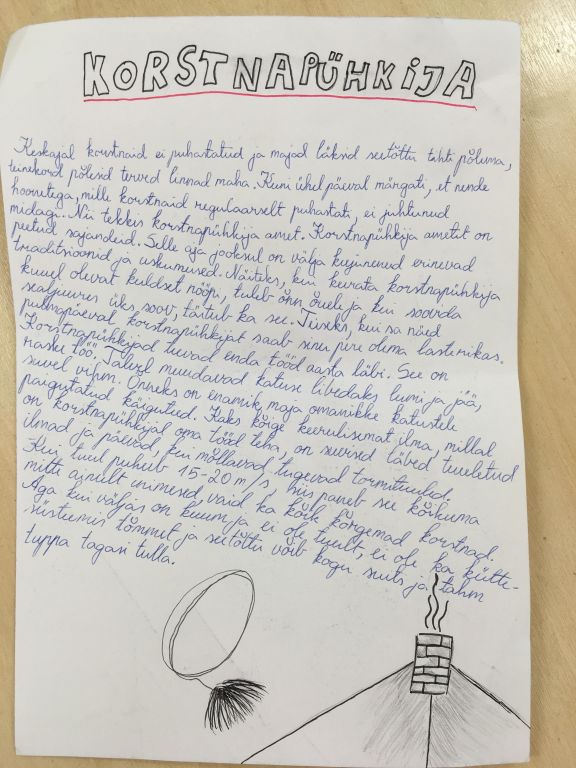 KORSTNAPÜHKIJA
Keskajal korstnaid ei puhastatud ja majad läksid seetõttu tihti põlema,
teinekord põlesid terved linnad maha. Kuni ühel päeval märgati, et nende
hoonetega, mille korstnaid regulaarselt puhastati, ei juhtunud
midagi. Nii tekkis korstnapühkija amet. Korstnapühkija ametit on
peetud sajandeid. Selle aja jooksul on välja kujunenud erinevad
traditsioonid ja uskumused. Näiteks, kui keerata korstnapühkija
kuuel olevat kuldset nööpi, tuleb õnn õuele ja kui soovida
sealjuures üks soov, täitub ka see. Teiseks, kui sa näed
pulmapäeval korstnapühkijat saab sinu pere olema lasterikas.
Korstnapühkijad teevad enda tööd aasta läbi. See on
raske töö. Talvel muudavad katuse libedaks lumi ja jää,
suvel vihm. Õnneks on enamik maja omanikke katustele
paigutatud käiguteed. Kaks kõige keerulisemat ilma, millal
on korstnapühkijal oma tööd teha, on suvised läbed tuuletud
ilmad ja päevad, kui möllavad tugevad tormituuled.
Kui tuul puhub 15-20 m/s, siis paneb see kõikuma
mitte ainult inimesed, vaid ka kõik kõrgemad korstnad.
Aga kui väljas on kuum ja ei ole tuult, ei ole ka kütte-
süsteemis tõmmet ja seetõttu võib kogu suits ja tahm
tuppa tagasi tulla.